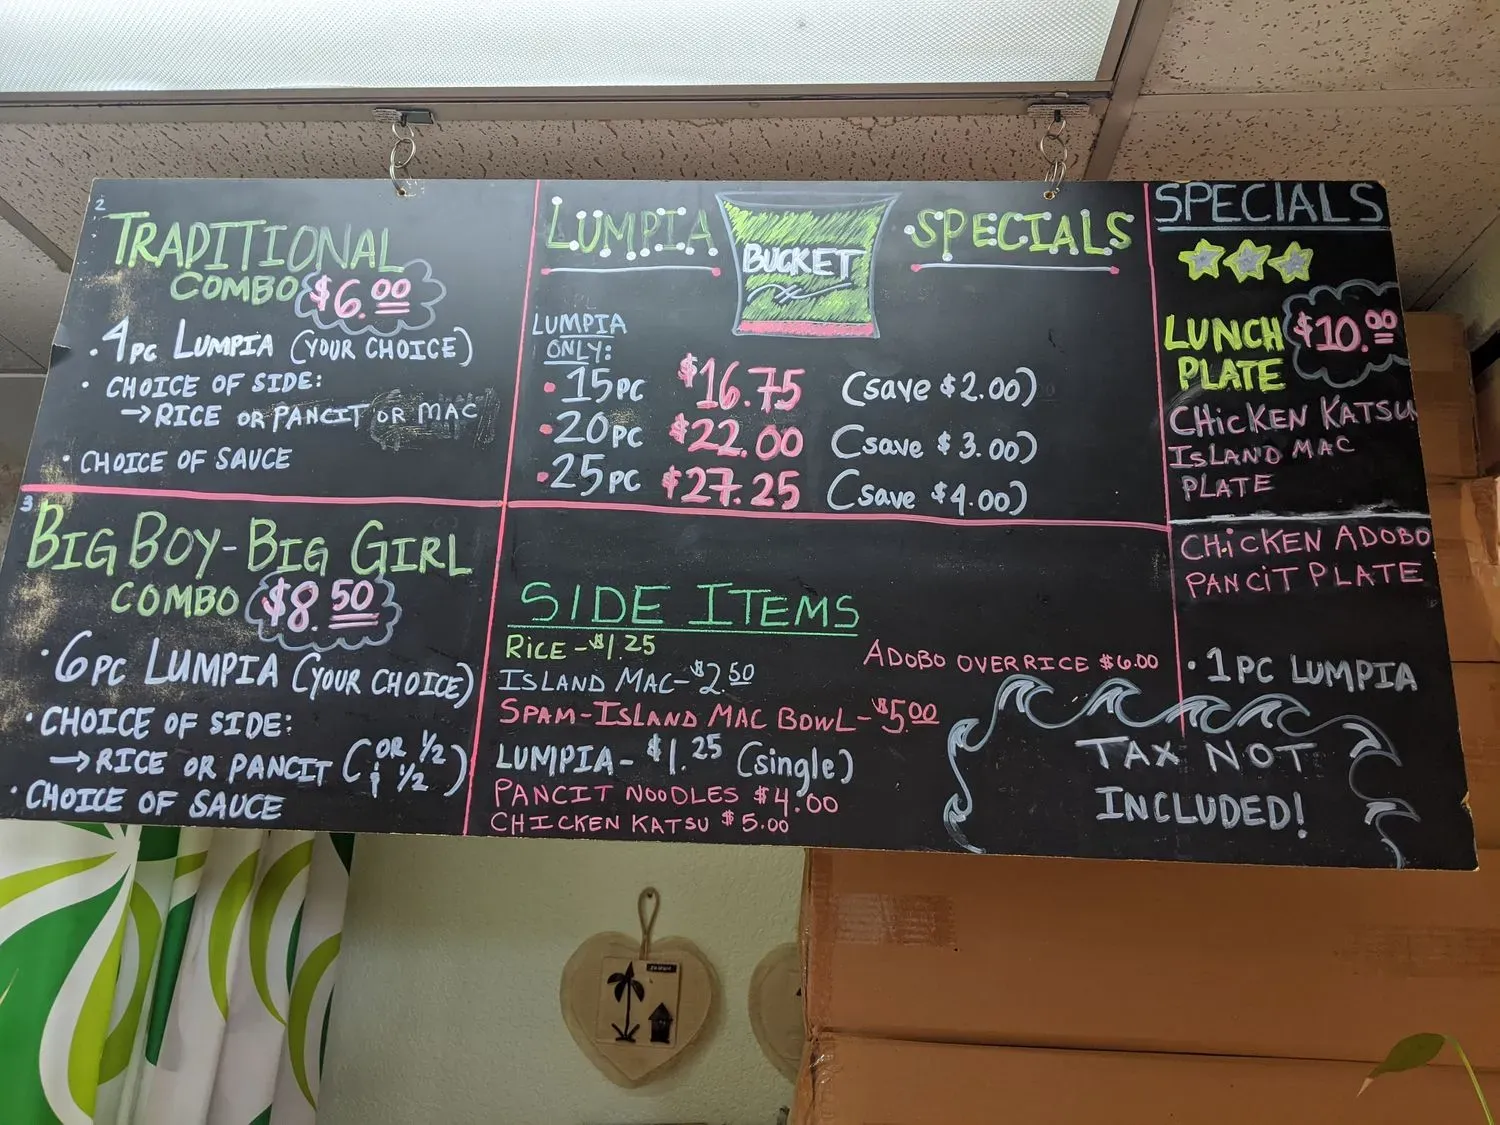 2
TRADITIONAL
COMBO $6.00
• 4PC LUMPIA (YOUR CHOICE)
• CHOICE OF SIDE:
→ RICE OR PANCIT OR MAC
• CHOICE OF SAUCE
3
BIG BOY-BIG GIRL
COMBO $8.50
• 6PC LUMPIA (YOUR CHOICE)
• CHOICE OF SIDE:
→ RICE OR PANCIT (OR 1/2 & 1/2)
• CHOICE OF SAUCE
LUMPIA BUCKET SPECIALS
LUMPIA
ONLY:
• 15PC $16.75 (save $2.00)
• 20PC $22.00 (save $3.00)
• 25PC $27.25 (save $4.00)
SIDE ITEMS
RICE - $1.25
ISLAND MAC - $2.50
SPAM-ISLAND MAC BOWL - $5.00
LUMPIA - $1.25 (single)
PANCIT NOODLES $4.00
CHICKEN KATSU $5.00
ADOBO OVER RICE $6.00
SPECIALS
LUNCH PLATE $10.00
CHICKEN KATSU
ISLAND MAC
PLATE
CHICKEN ADOBO
PANCIT PLATE
• 1PC LUMPIA
TAX NOT
INCLUDED!